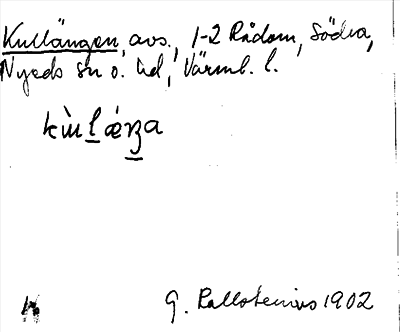 Kullängen, avs., 1-2 Rådom, Södra,
Nyeds sn o. hd, Värml. l.
kùlǽŋa
G. Kallstenius 1902